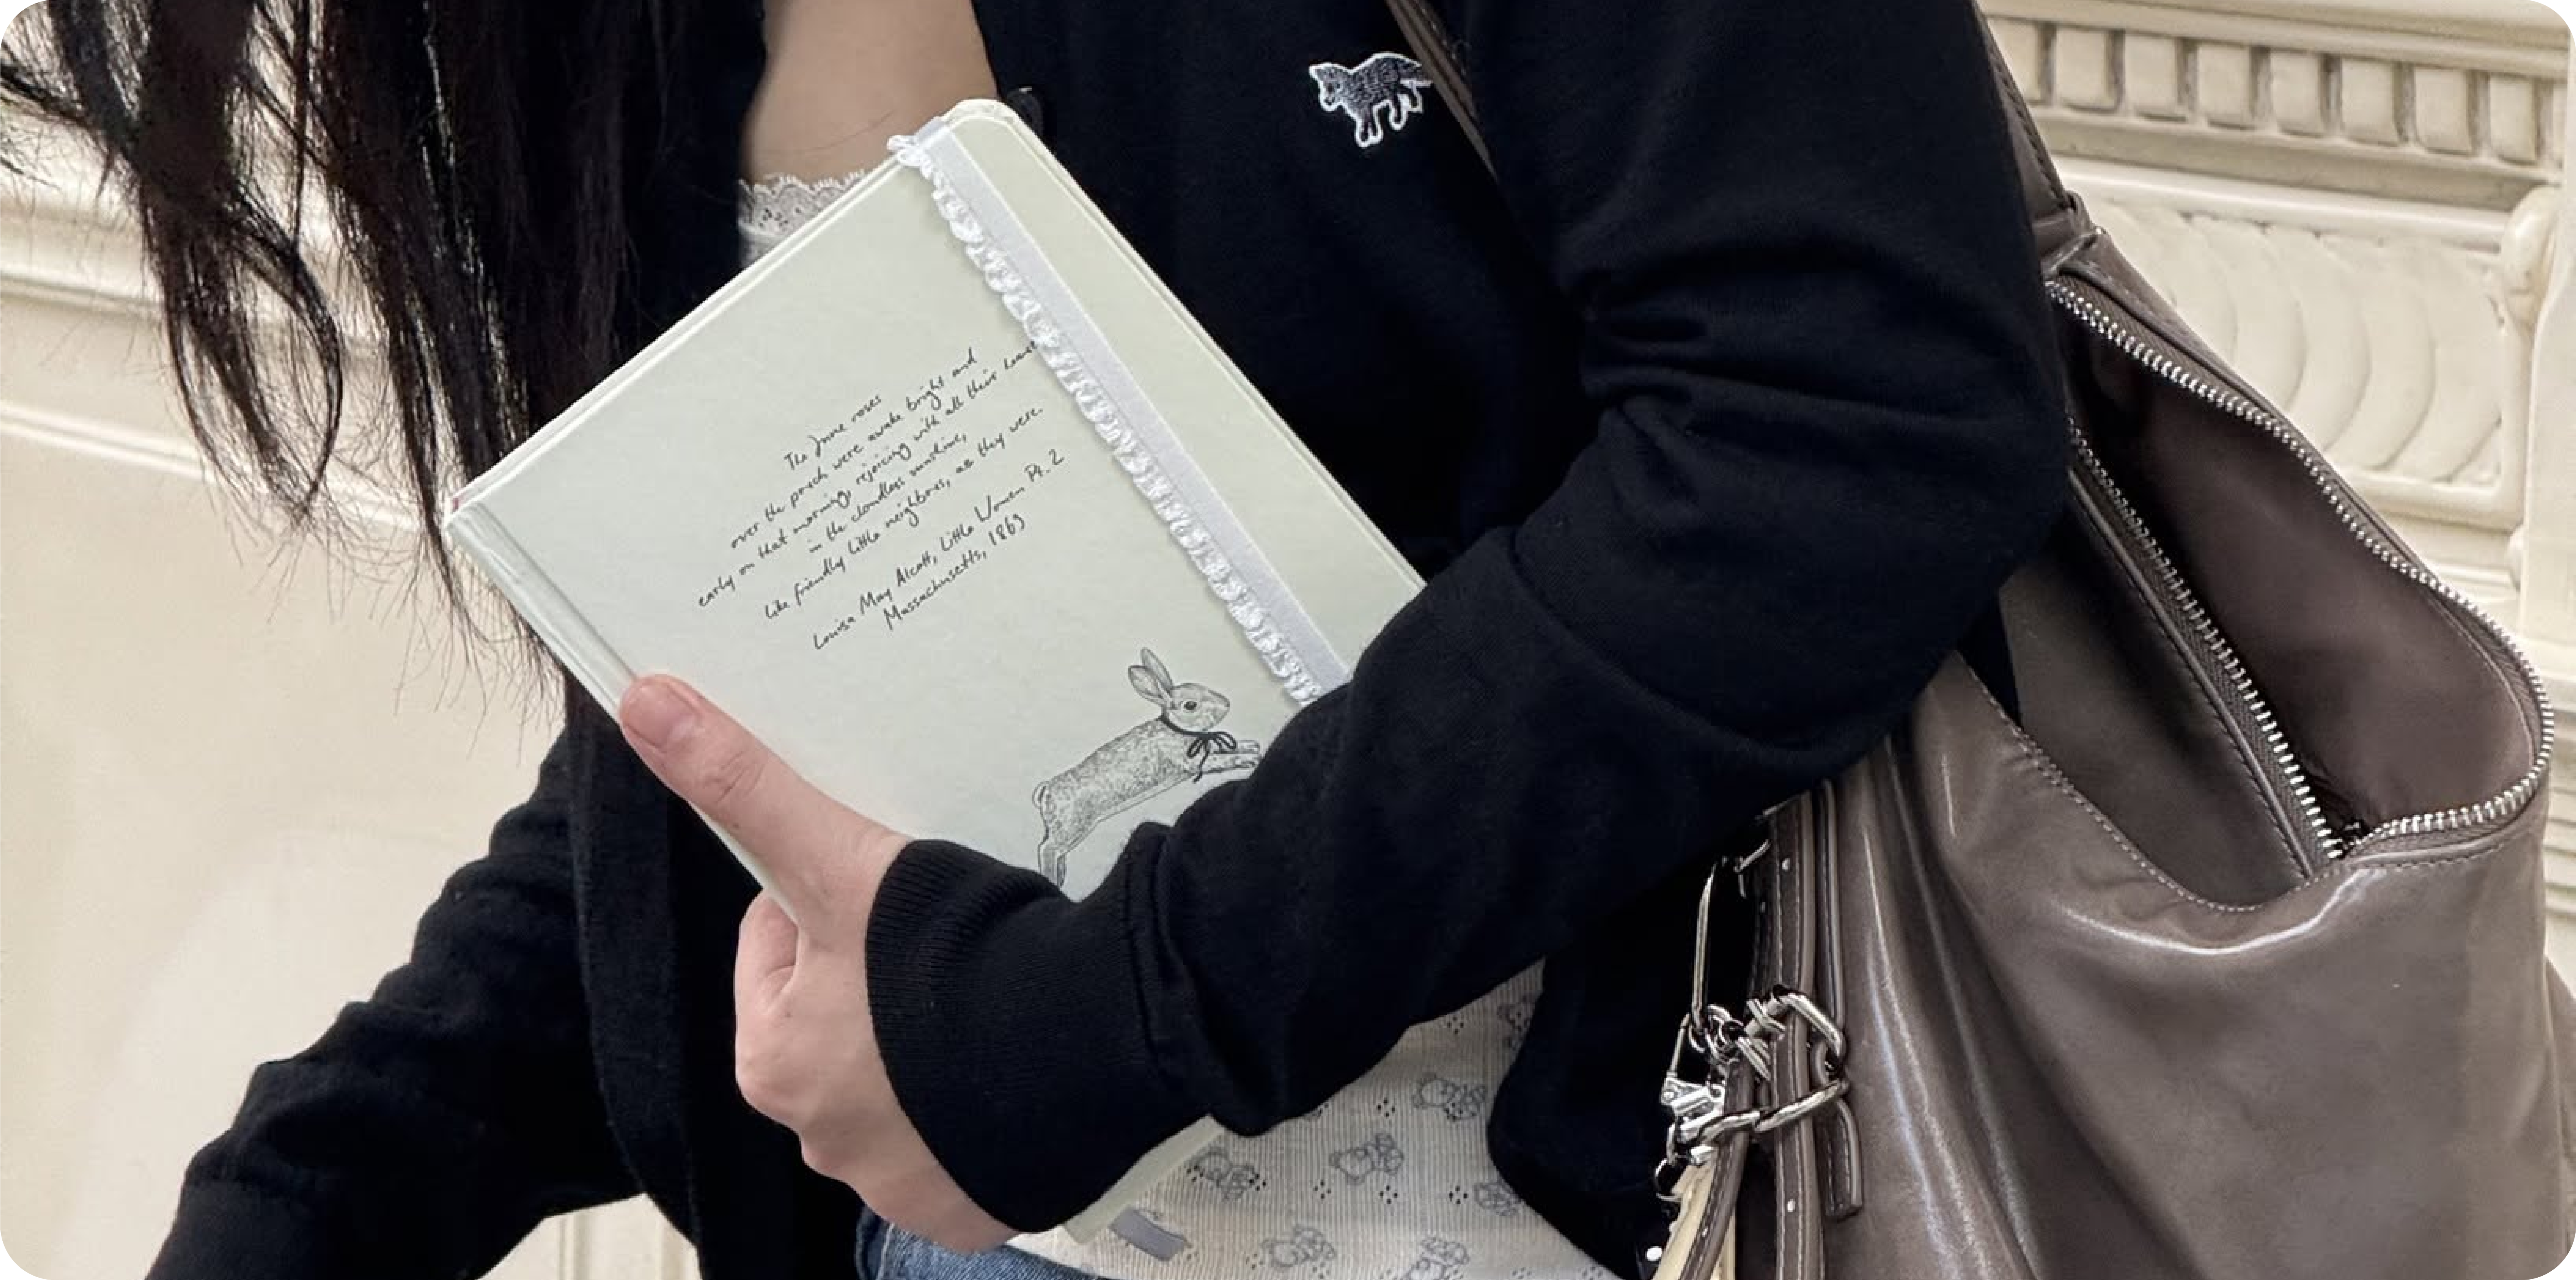 The June roses
over the porch were awake bright and
early on that morning, rejoicing with all their heart
in the cloudless sunshine,
like friendly little neighbors, as they were.
Louisa May Alcott, Little Women Pt. 2
Massachusetts, 1869